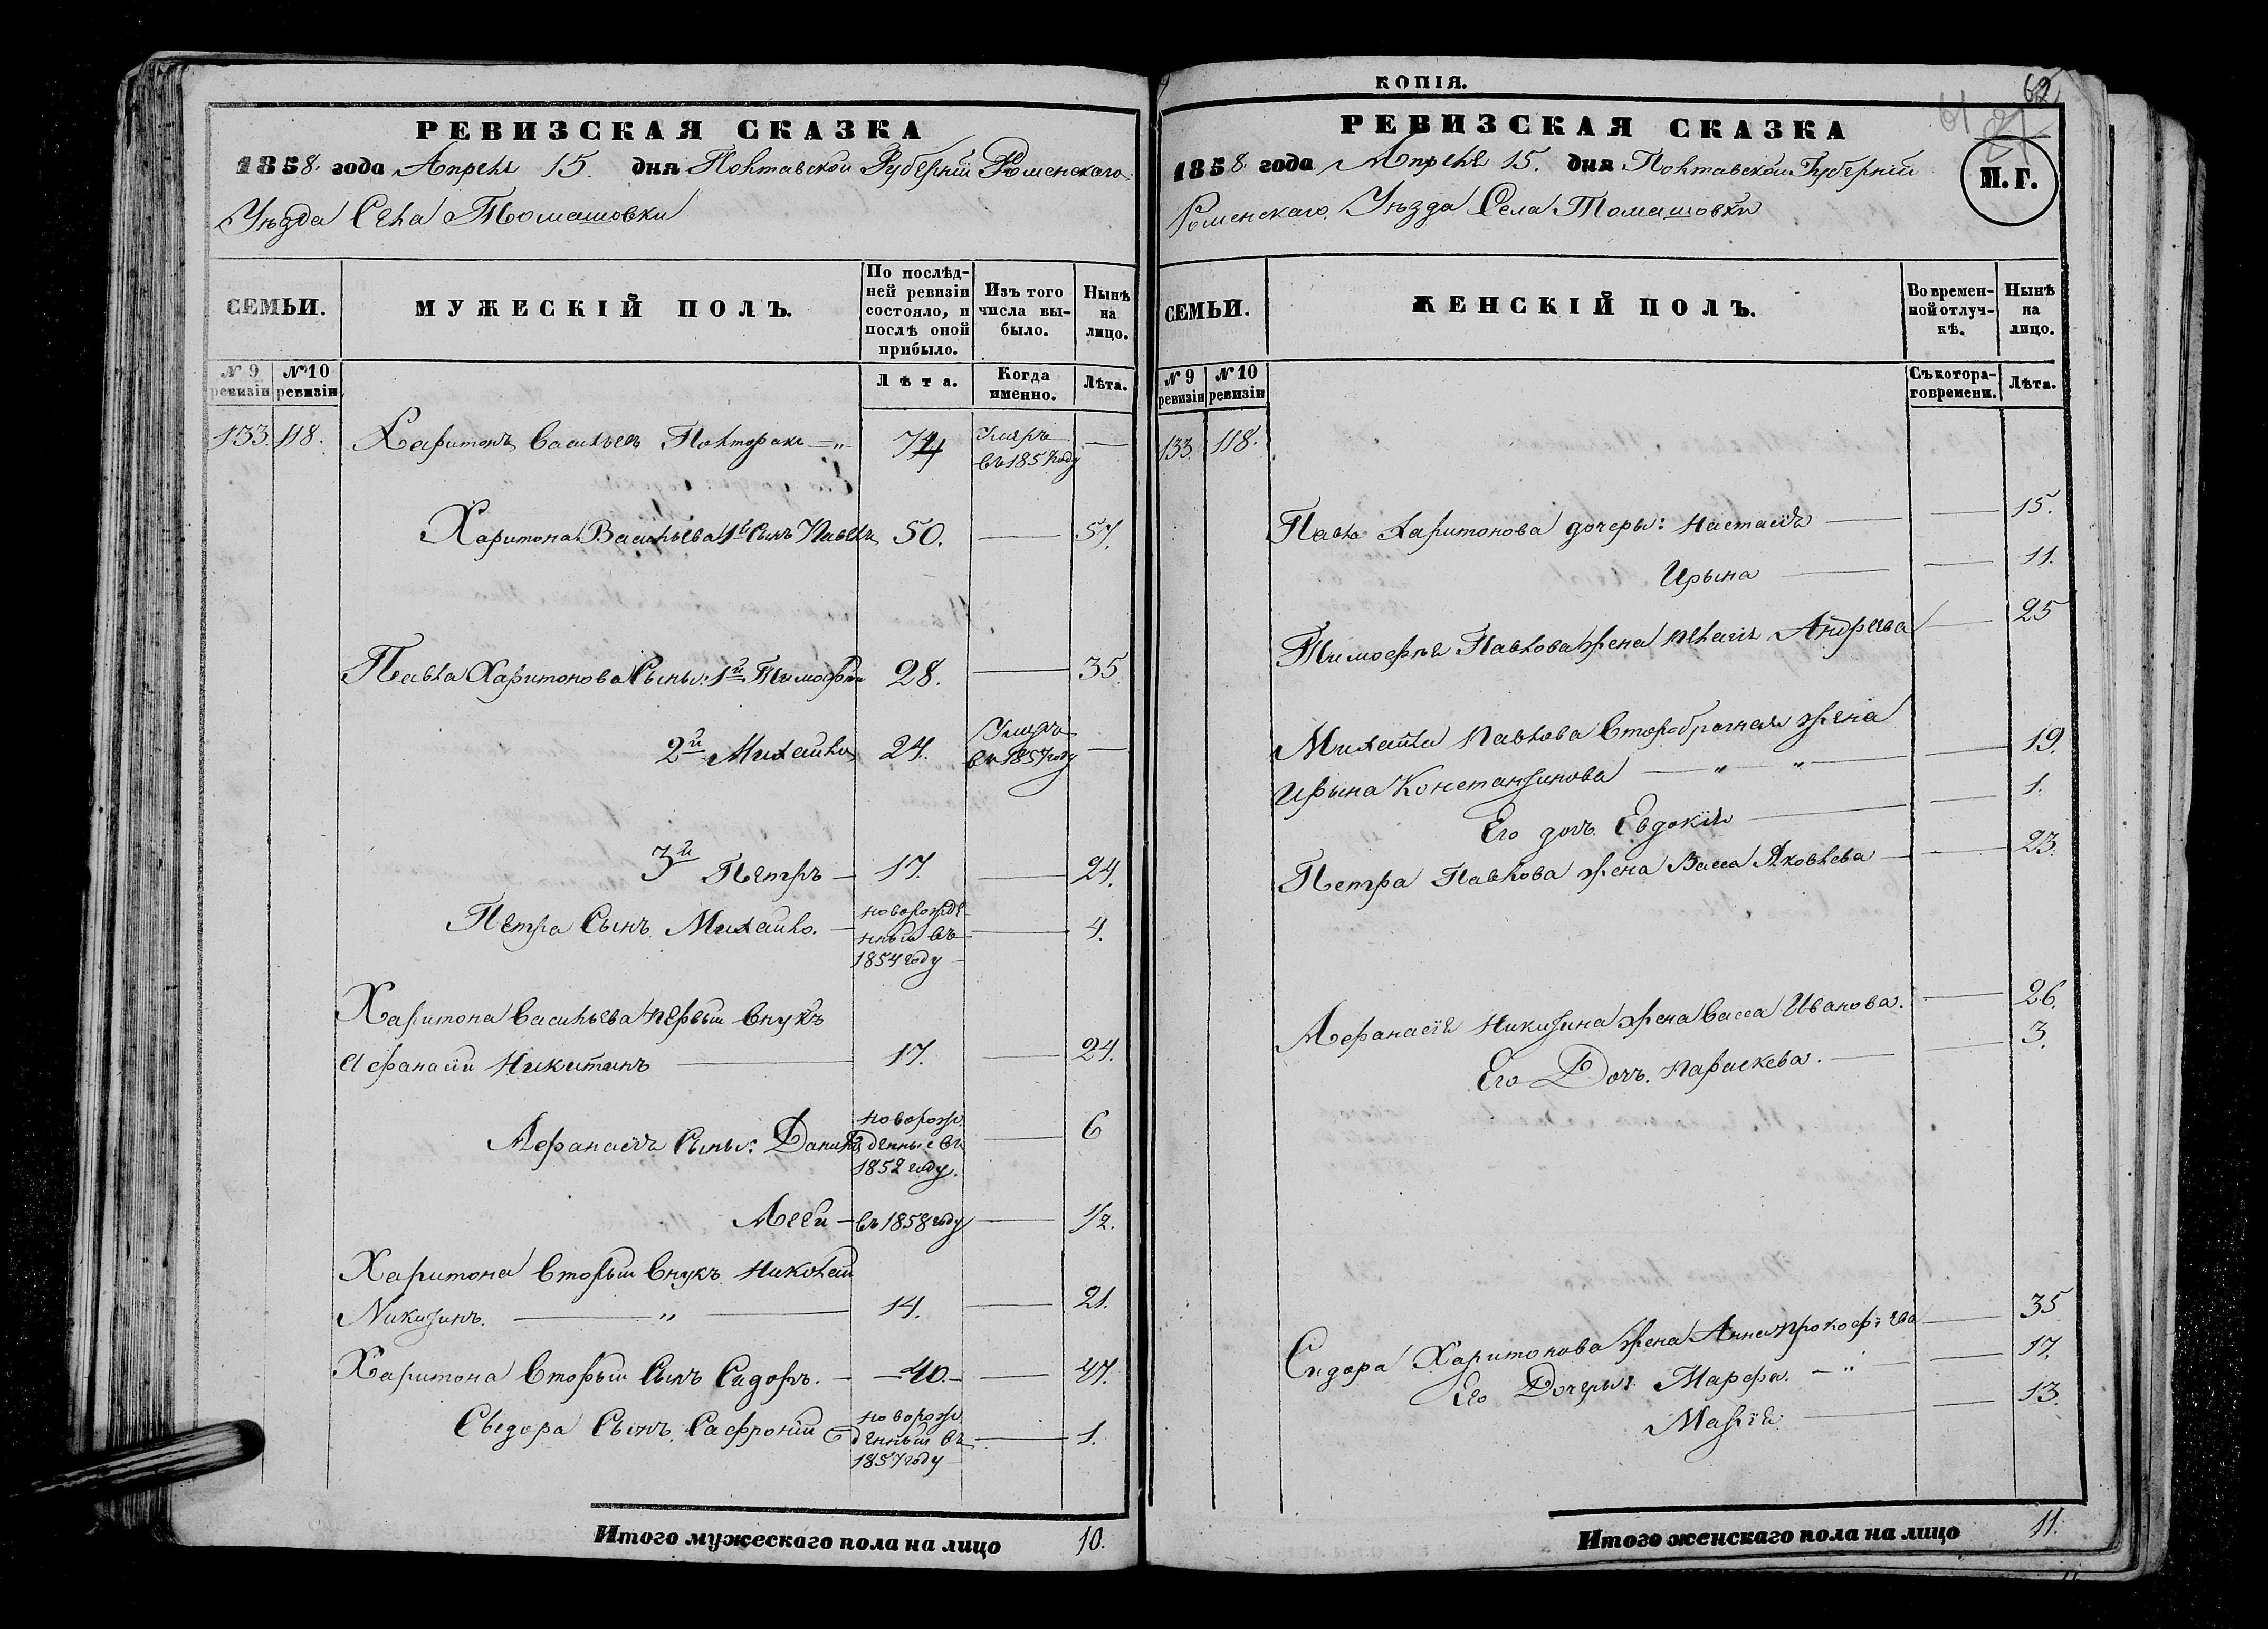 РЕВИЗСКАЯ СКАЗКА
1858. года Апреля 15. дня Полтавской Губерніи Роменскаго
Уѣзда Села Томашовки
СЕМЬИ.
МУЖЕСКІЙ ПОЛЪ.
По послѣд-
ней ревизіи
состояло, и
послѣ оной
прибыло.
Изъ того
числа вы-
было.
Нынѣ
на
лицо.
№ 9
ревизіи
№ 10
ревизіи
Лѣта.
Когда
именно.
Лѣта.
133. 118. Харитонъ Васильевъ Полторака — 74 Умеръ
въ 1857 году —
Харитона Васильева 1й Сынъ Павелъ 50. — 57.
Павла Харитонова Сыны: 1й Тимофей 28. — 35.
2й Михайло 24. Умеръ
въ 1857 году —
3й Петръ — 17. — 24.
Петра Сынъ Михайло. — новорожде
нный въ
1854 году — 4.
Харитона Васильева первый внукъ
Афанасій Никитинъ — 17. — 24.
Афанасія Сыны: Данило новорож
денные въ
1852 году. — 6
— въ 1858 году — 1/2.
Харитона вторый внукъ Николай
Никитинъ. — " — 14. — 21.
Харитона Вторый Сынъ Сидоръ. — 40. — 47.
Сыдора Сынъ Сафроній новорож
денный въ
1857 году — 1.
Итого мужескаго пола на лицо 10.
КОПІЯ.
62
61
РЕВИЗСКАЯ СКАЗКА
1858. года Апреля 15. дня Полтавской Губерніи
Роменскаго Уѣзда Села Томашовки
М. Г.
СЕМЬИ.
ЖЕНСКІЙ ПОЛЪ.
Во времен-
ной отлуч-
кѣ.
Нынѣ
на
лицо.
№ 9
ревизіи
№ 10
ревизіи
Съ котора-
го времени.
Лѣта.
133. 118.
Павла Харитонова дочеры: Настасія — 15.
Ирына — 11.
Тимофея Павлова жена Пелагія Андреева — 25
Михайла Павлова второбрачная жена
Ирына Константинова — " " — 19.
Его дочъ Евдокія — 1.
Петра Павлова жена Васса Яковлева — 23.
Афанасія Никитина жена Васса Иванова. — 26.
Его Дочъ. Параскева. — 3.
Сидора Харитонова жена Анна Прокофіева — 35
Его Дочеры: Марфа. — " — 17.
Марія — 13.
Итого женскаго пола на лицо 11.